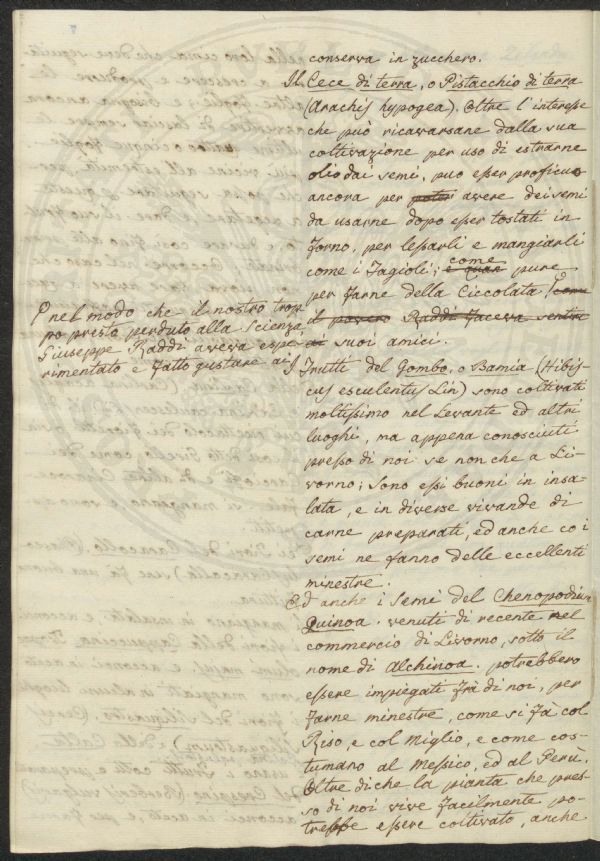 conserva in zucchero.
Il Cece di terra, o Pistacchio di terra
(Arachis hypogea), Oltre l'interesse
che può ricavarsane dalla sua
coltivazione per uso di estrarne
olio dai semi, può esser proficuo
ancora per poter avere dei semi
da usarne dopo esser tostati in
forno, per lessarli e mangiarli
come i Fagioli; e quan come pure
per farne della Ciccolata, come
il povero Raddi faceva sentire
ai suoi amici.
nel modo che il nostro trop-
po presto perduto alla Scienza
Giuseppe Raddi aveva espe-
rimentato e fatto gustare ai
I Frutti del Gombo, o Bamia (Hibis-
cus esculentus Lin) sono coltivati
moltissimo nel Levante ed altri
luoghi, ma appena conosciuti
presso di noi se non che a Li-
vorno; sono essi buoni in insa-
lata, e in diverse vivande di
carne preparati, ed anche coi
semi ne fanno delle eccellenti
minestre.
Ed anche i Semi del Chenopodium
Quinoa, venuti di recente nel
commercio di Livorno, sotto il
nome di Alchinoa, potrebbero
essere impiegati frà di noi, per
farne minestre, come si fà col
Riso, e col Miglio, e come cos-
tumano al Messico, ed al Perù.
Oltre di che la pianta che pres-
so di noi vive facilmente po-
trebbe essere coltivato, anche